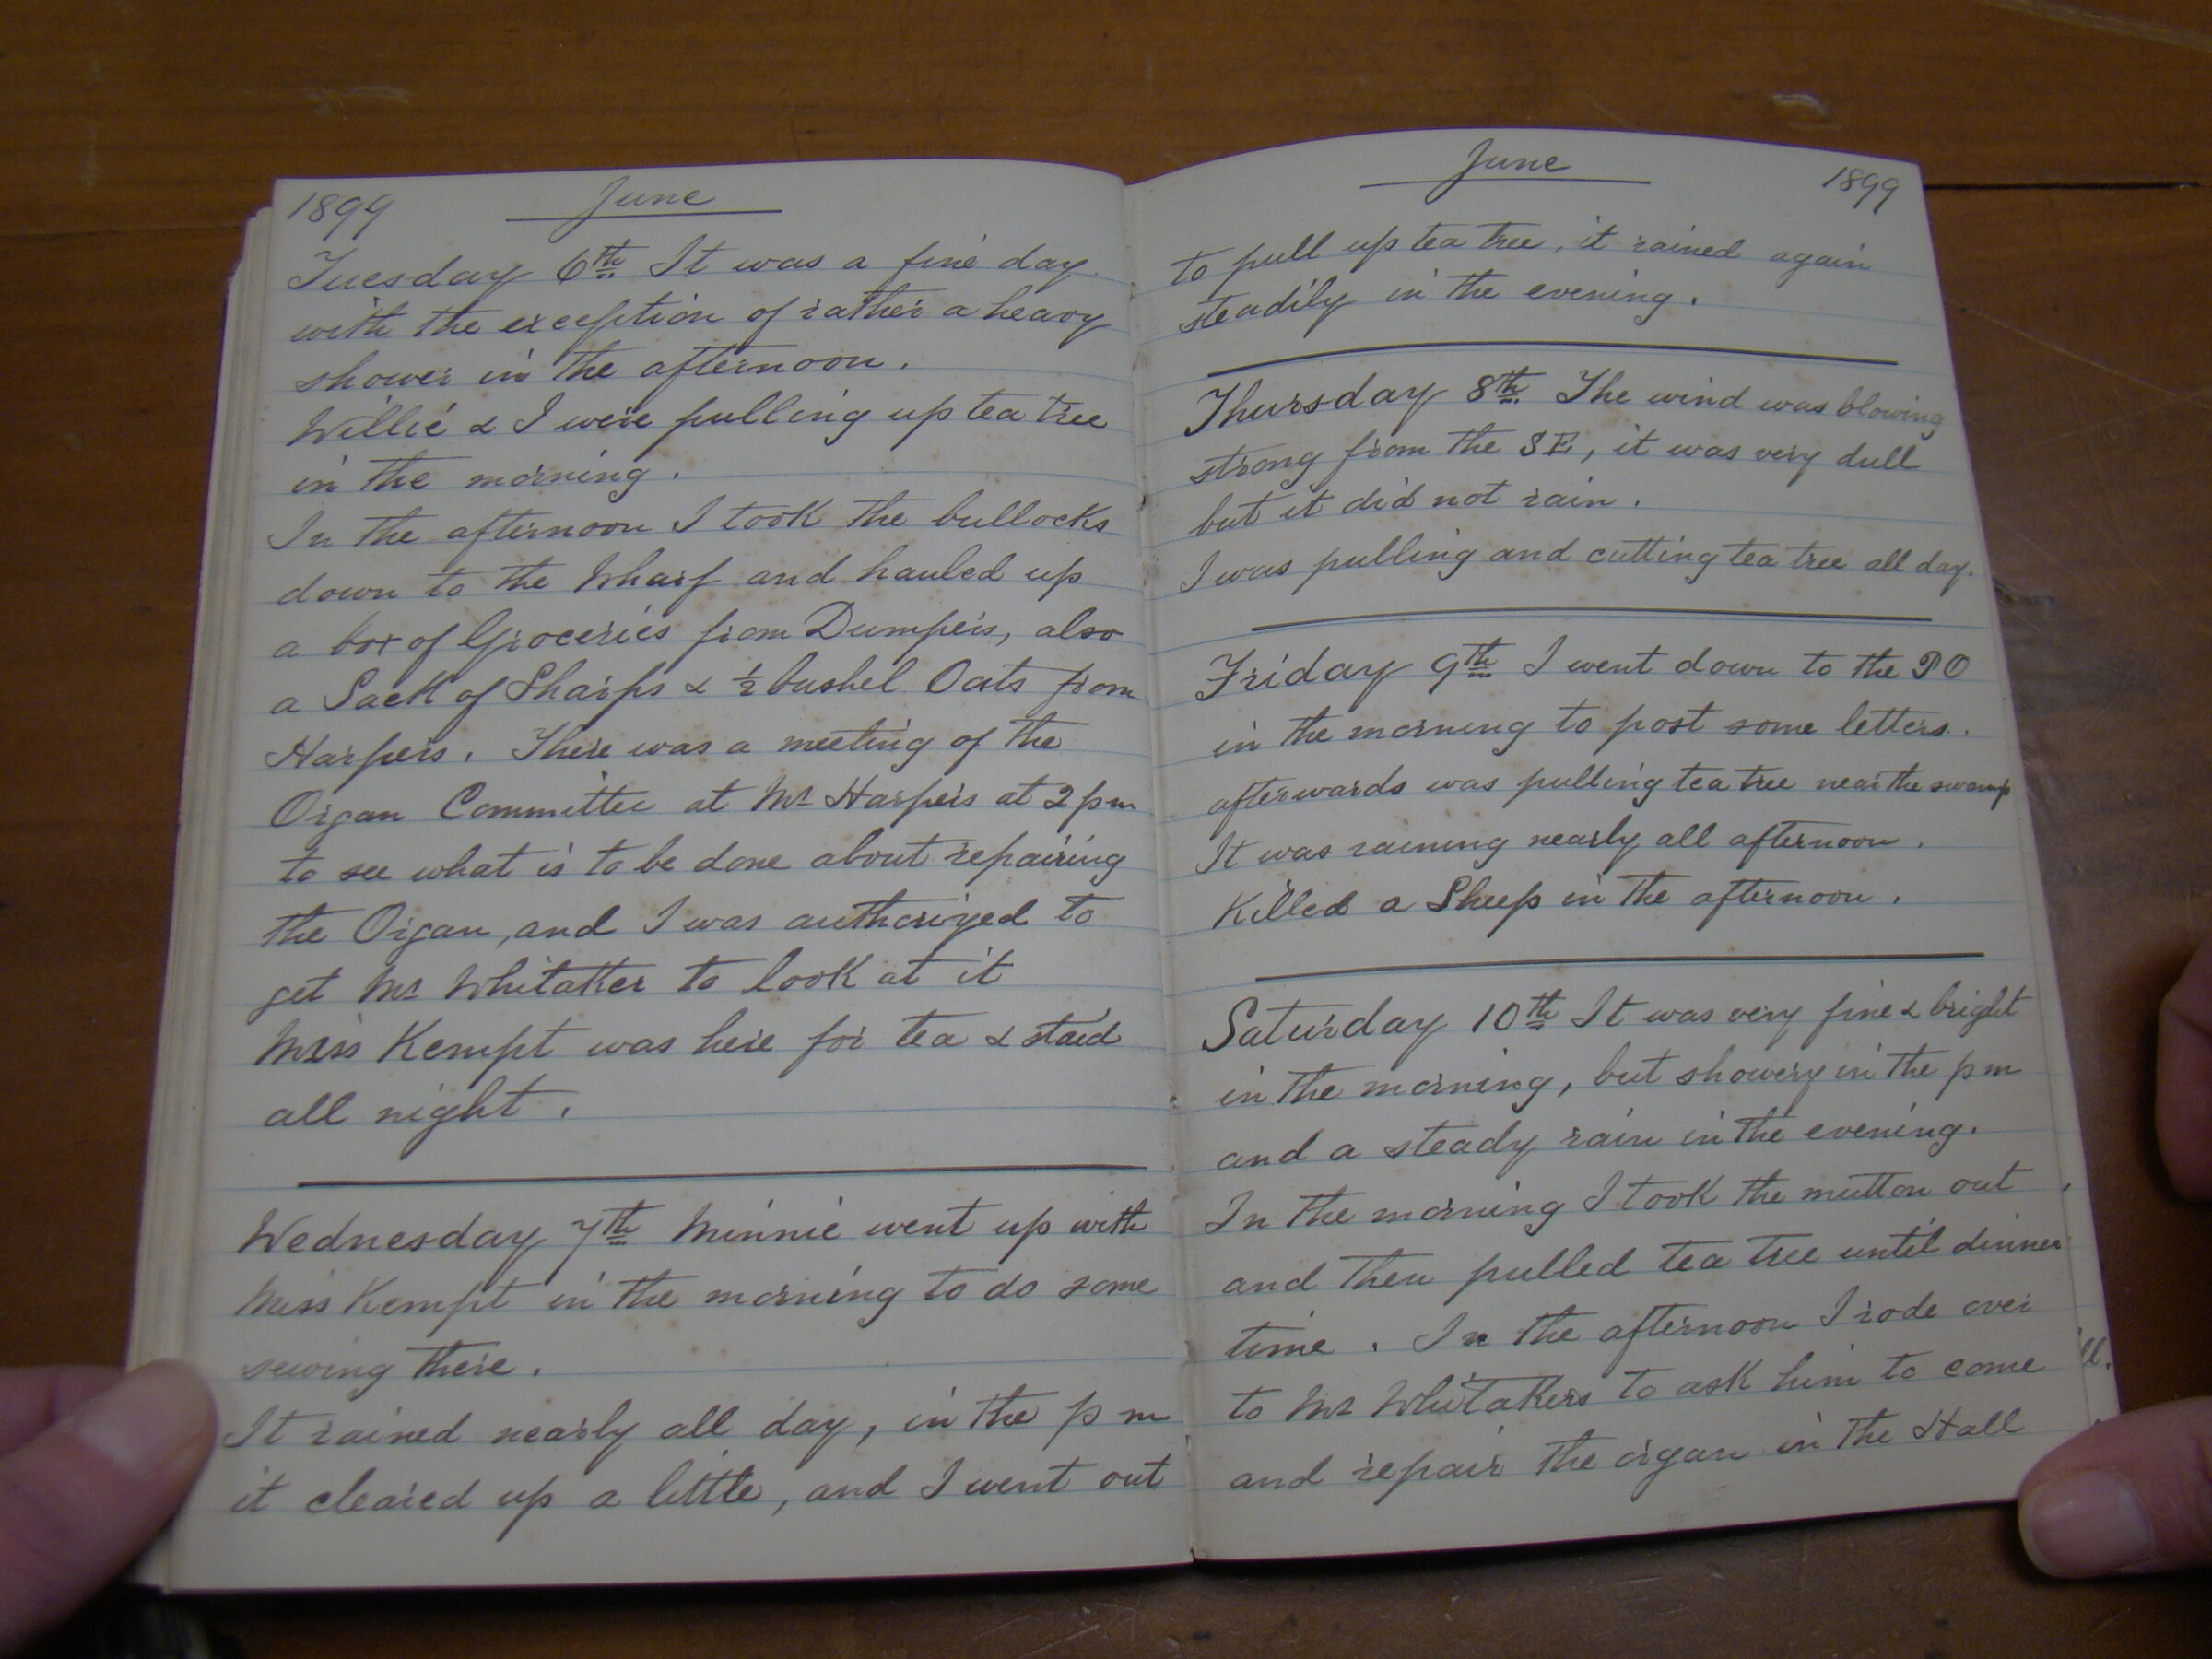 1899 June
Tuesday 6th It was a fine day
with the exception of rather a heavy
shower in the afternoon.
Willie & I were pulling up tea tree
in the morning.
In the afternoon I took the bullocks
down to the Wharf and hauled up
a box of Groceries from Dumpers, also
a Sack of Sharps & ½ bushel Oats from
Harpers. There was a meeting of the
Organ Committee at Mr Harpers at 2 pm
to see what is to be done about repairing
the Organ, and I was authorized to
get Mr Whitaker to look at it
Miss Kempt was here for tea & staid
all night.
Wednesday 7th Minnie went up with
Miss Kempt in the morning to do some
sewing there.
It rained nearly all day, in the p m
it cleared up a little, and I went out
June 1899
to pull up tea tree, it rained again
steadily in the evening.
Thursday 8th The wind was blowing
strong from the SE, it was very dull
but it did not rain.
I was pulling and cutting tea tree all day.
Friday 9th I went down to the PO
in the morning to post some letters.
afterwards was pulling tea tree near the swamp
It was raining nearly all afternoon.
Killed a Sheep in the afternoon.
Saturday 10th It was very fine & bright
in the morning, but showery in the p m
and a steady rain in the evening.
In the morning I took the mutton out
and then pulled tea tree until dinner
time. In the afternoon I rode over
to Mr Whitakers to ask him to come
and repair the organ in the Hall